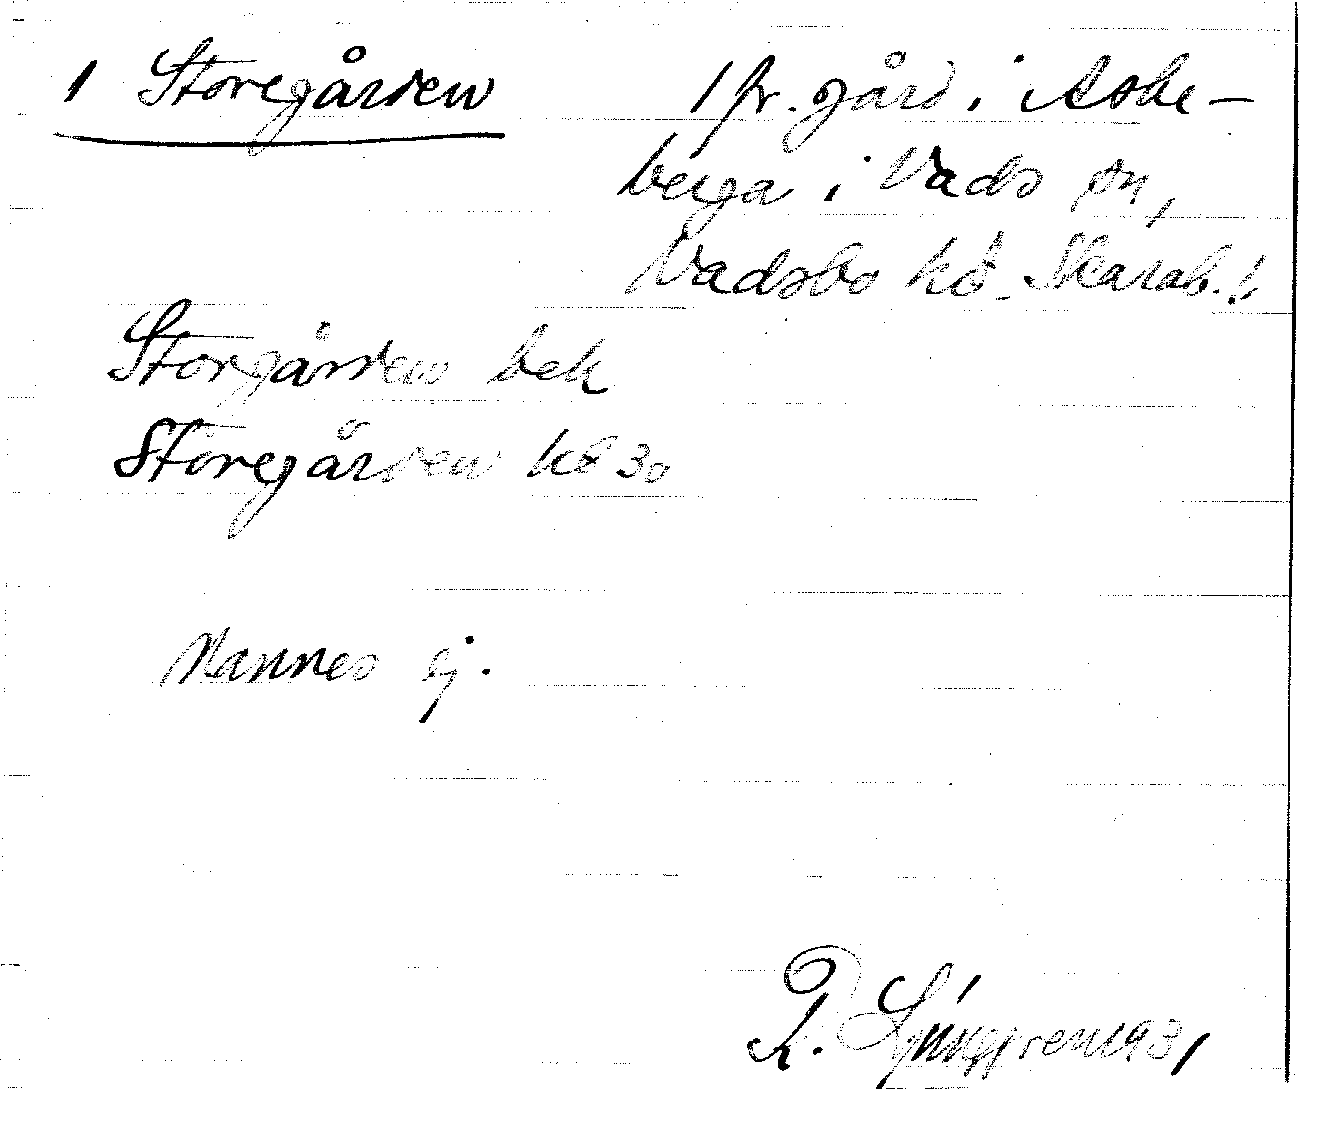 1 Storegården
1 fr. gård i Aske-
berga i Vads sn,
Vadsbo hd. Skarab. l
Storgården bek
Storegården kt 30
Kannes ej.
R. Ljunggren 1931